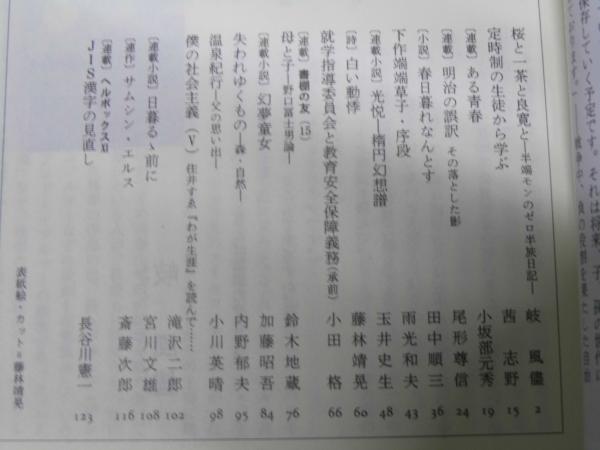 保存していく予定です。それは将来、子、孫の世代に
戦争中、負の役割を果たした自治
桜と一茶と良寛と―半端モンのゼロ半族日記― 岐 風儘 2
定時制の生徒から学ぶ 茜 志野 15
〔連載〕ある青春 小坂部元秀 19
〔連載〕明治の誤訳 その落とした影 尾形尊信 24
〔小説〕春日暮れなんとす 田中順三 36
下作端端草子・序段 雨光和夫 43
〔連載小説〕光悦―楕円幻想譜 玉井史生 48
〔詩〕白い動悸 藤林靖晃 60
就学指導委員会と教育安全保障義務(承前) 小田 格 66
〔連載〕書棚の友(15)
母と子―野口冨士男論― 鈴木地蔵 76
〔連載小説〕幻夢童女 加藤昭吾 84
失われゆくもの―森・自然― 内野郁夫 95
温泉紀行―父の思い出― 小川英晴 98
僕の社会主義(Ⅴ) 住井すゑ『わが生涯』を読んで…… 滝沢二郎 102
〔連載小説〕日暮るゝ前に 宮川文雄 108
〔連作〕サムシン・エルス 斎藤次郎 116
〔連載〕ヘルボックスⅪ
JIS漢字の見直し 長谷川憲一 123
表紙絵・カット=藤林靖晃